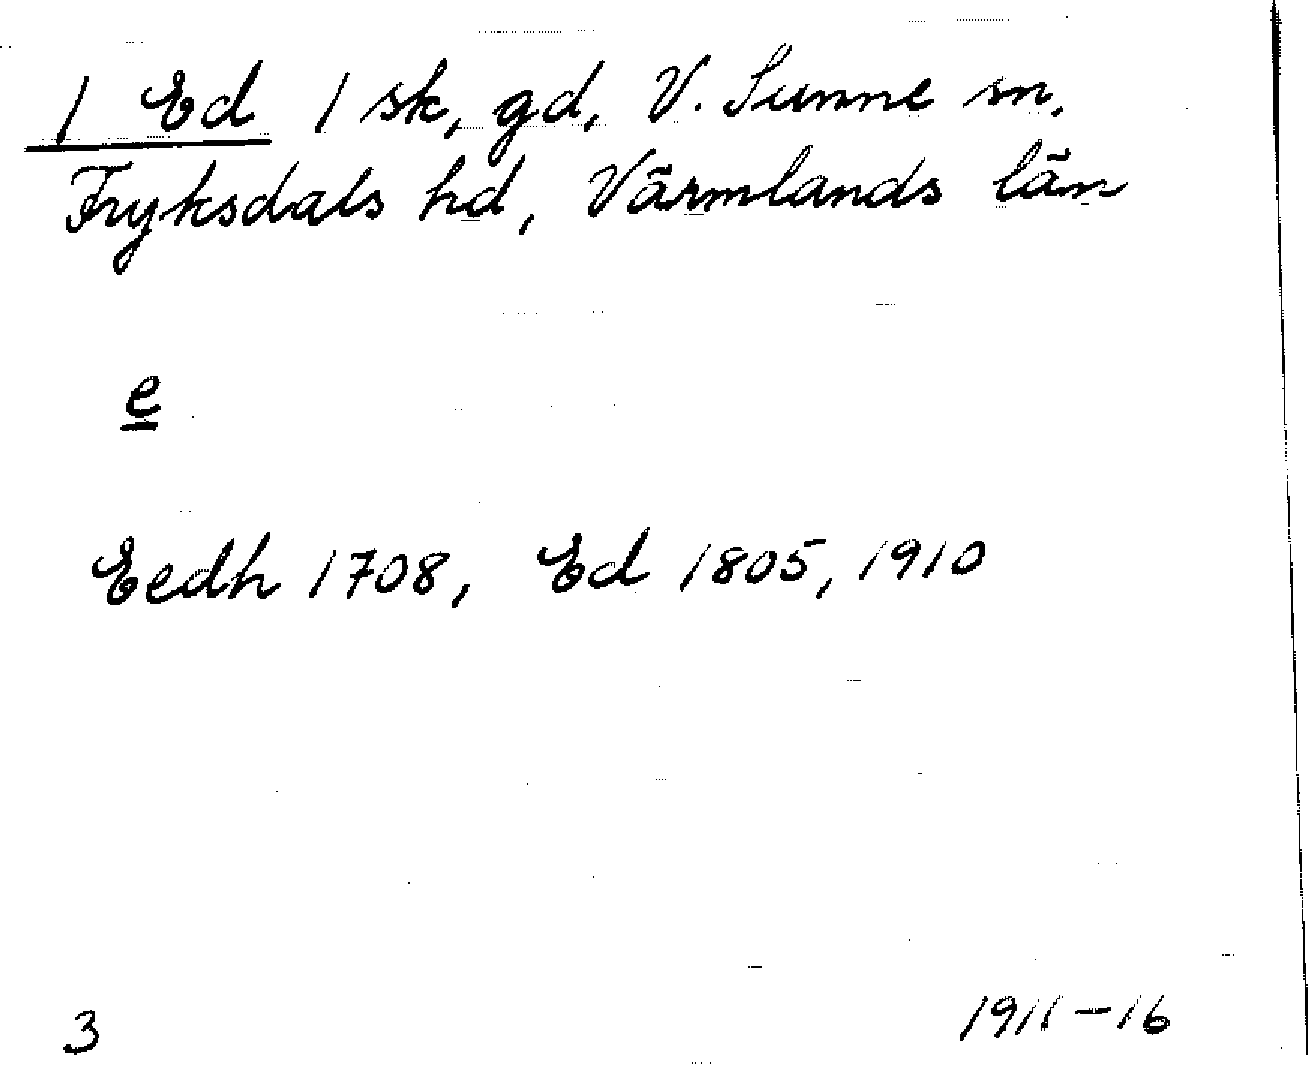 1 Ed 1 sk, gd, V. Sunne sn,
Fryksdals hd, Värmlands län
e
Eedh 1708, Ed 1805, 1910
3
1911-16